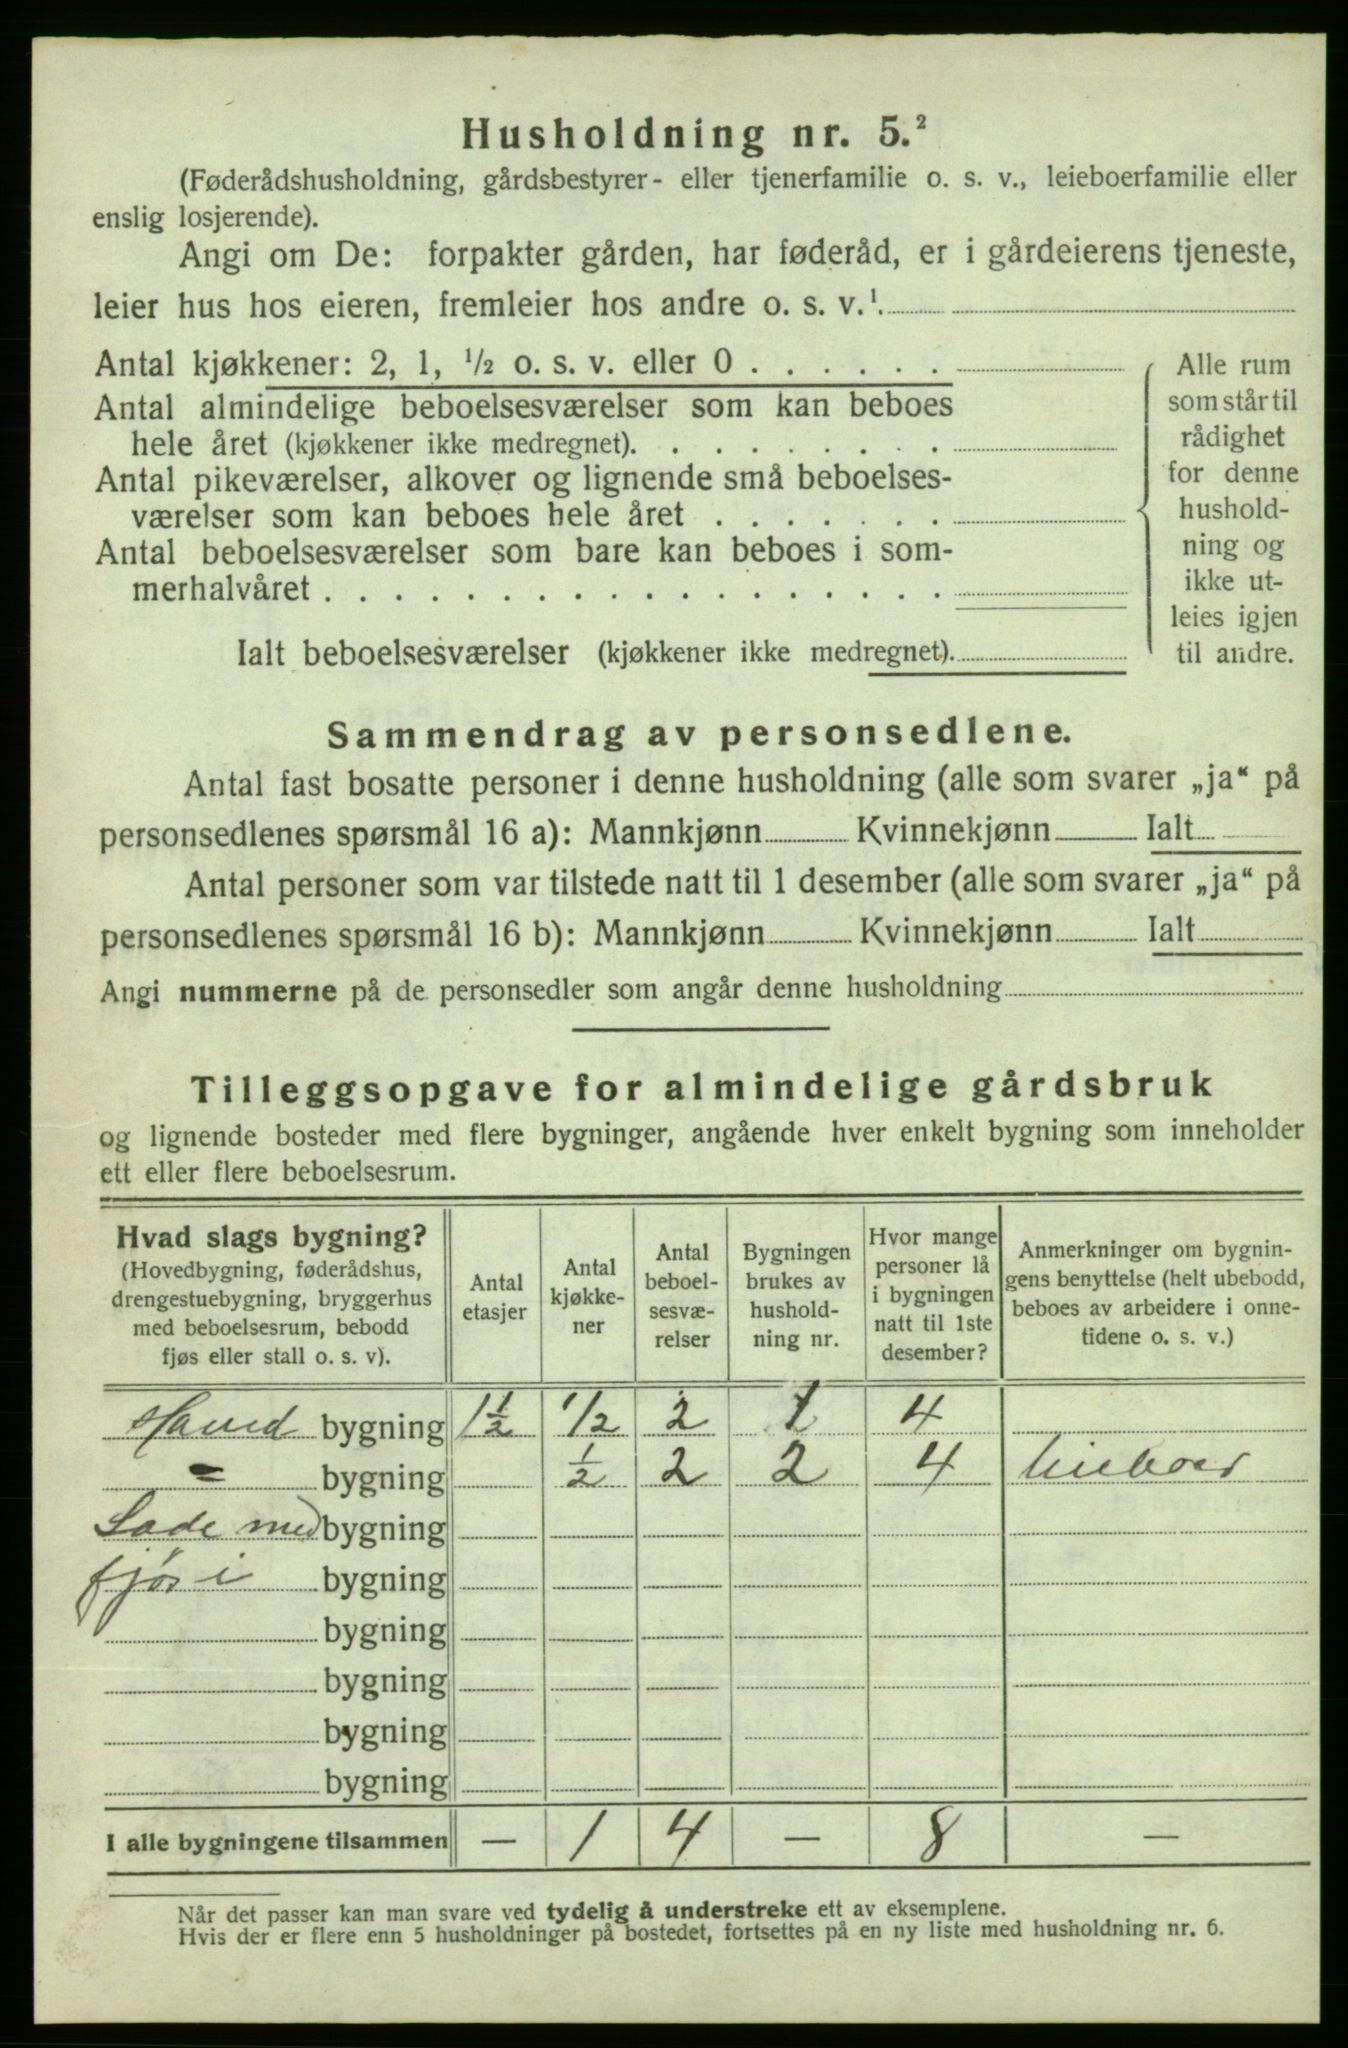 Husholdning nr. 5.²
(Føderådshusholdning, gårdsbestyrer- eller tjenerfamilie o. s. v., leieboerfamilie eller
enslig losjerende).
Angi om De: forpakter gården, har føderåd, er i gårdeierens tjeneste,
leier hus hos eieren, fremleier hos andre o. s. v.¹
Antal kjøkkener: 2, 1, ½ o. s. v. eller 0 . . . . . .
Antal almindelige beboelsesværelser som kan beboes
hele året (kjøkkener ikke medregnet). . . . . . . . .
Antal pikeværelser, alkover og lignende små beboelses-
værelser som kan beboes hele året . . . . . . .
Antal beboelsesværelser som bare kan beboes i som-
merhalvåret . . . . . . . . . . . . . . . . . .
Ialt beboelsesværelser (kjøkkener ikke medregnet).
Alle rum
som står til
rådighet
for denne
hushold-
ning og
ikke ut-
leies igjen
til andre.
Sammendrag av personsedlene.
Antal fast bosatte personer i denne husholdning (alle som svarer „ja“ på
personsedlenes spørsmål 16 a): Mannkjønn Kvinnekjønn Ialt
Antal personer som var tilstede natt til 1 desember (alle som svarer „ja“ på
personsedlenes spørsmål 16 b): Mannkjønn Kvinnekjønn Ialt
Angi nummerne på de personsedler som angår denne husholdning
Tilleggsopgave for almindelige gårdsbruk
og lignende bosteder med flere bygninger, angående hver enkelt bygning som inneholder
ett eller flere beboelsesrum.
Hvad slags bygning?
(Hovedbygning, føderådshus,
drengestuebygning, bryggerhus
med beboelsesrum, bebodd
fjøs eller stall o. s. v).
Antal
etasjer
Antal
kjøkke-
ner
Antal
beboel-
sesvæ-
relser
Bygningen
brukes av
hushold-
ning nr.
Hvor mange
personer lå
i bygningen
natt til 1ste
desember?
Anmerkninger om bygnin-
gens benyttelse (helt ubebodd,
beboes av arbeidere i onne-
tidene o. s. v.)
bygning 1½ 1/2 2 1 4
" bygning ½ 2 2 4
Lade med bygning
fjøs i bygning
bygning
bygning
bygning
bygning
I alle bygningene tilsammen — 1 4 — 8 —
Når det passer kan man svare ved tydelig å understreke ett av eksemplene.
Hvis der er flere enn 5 husholdninger på bostedet, fortsettes på en ny liste med husholdning nr. 6.